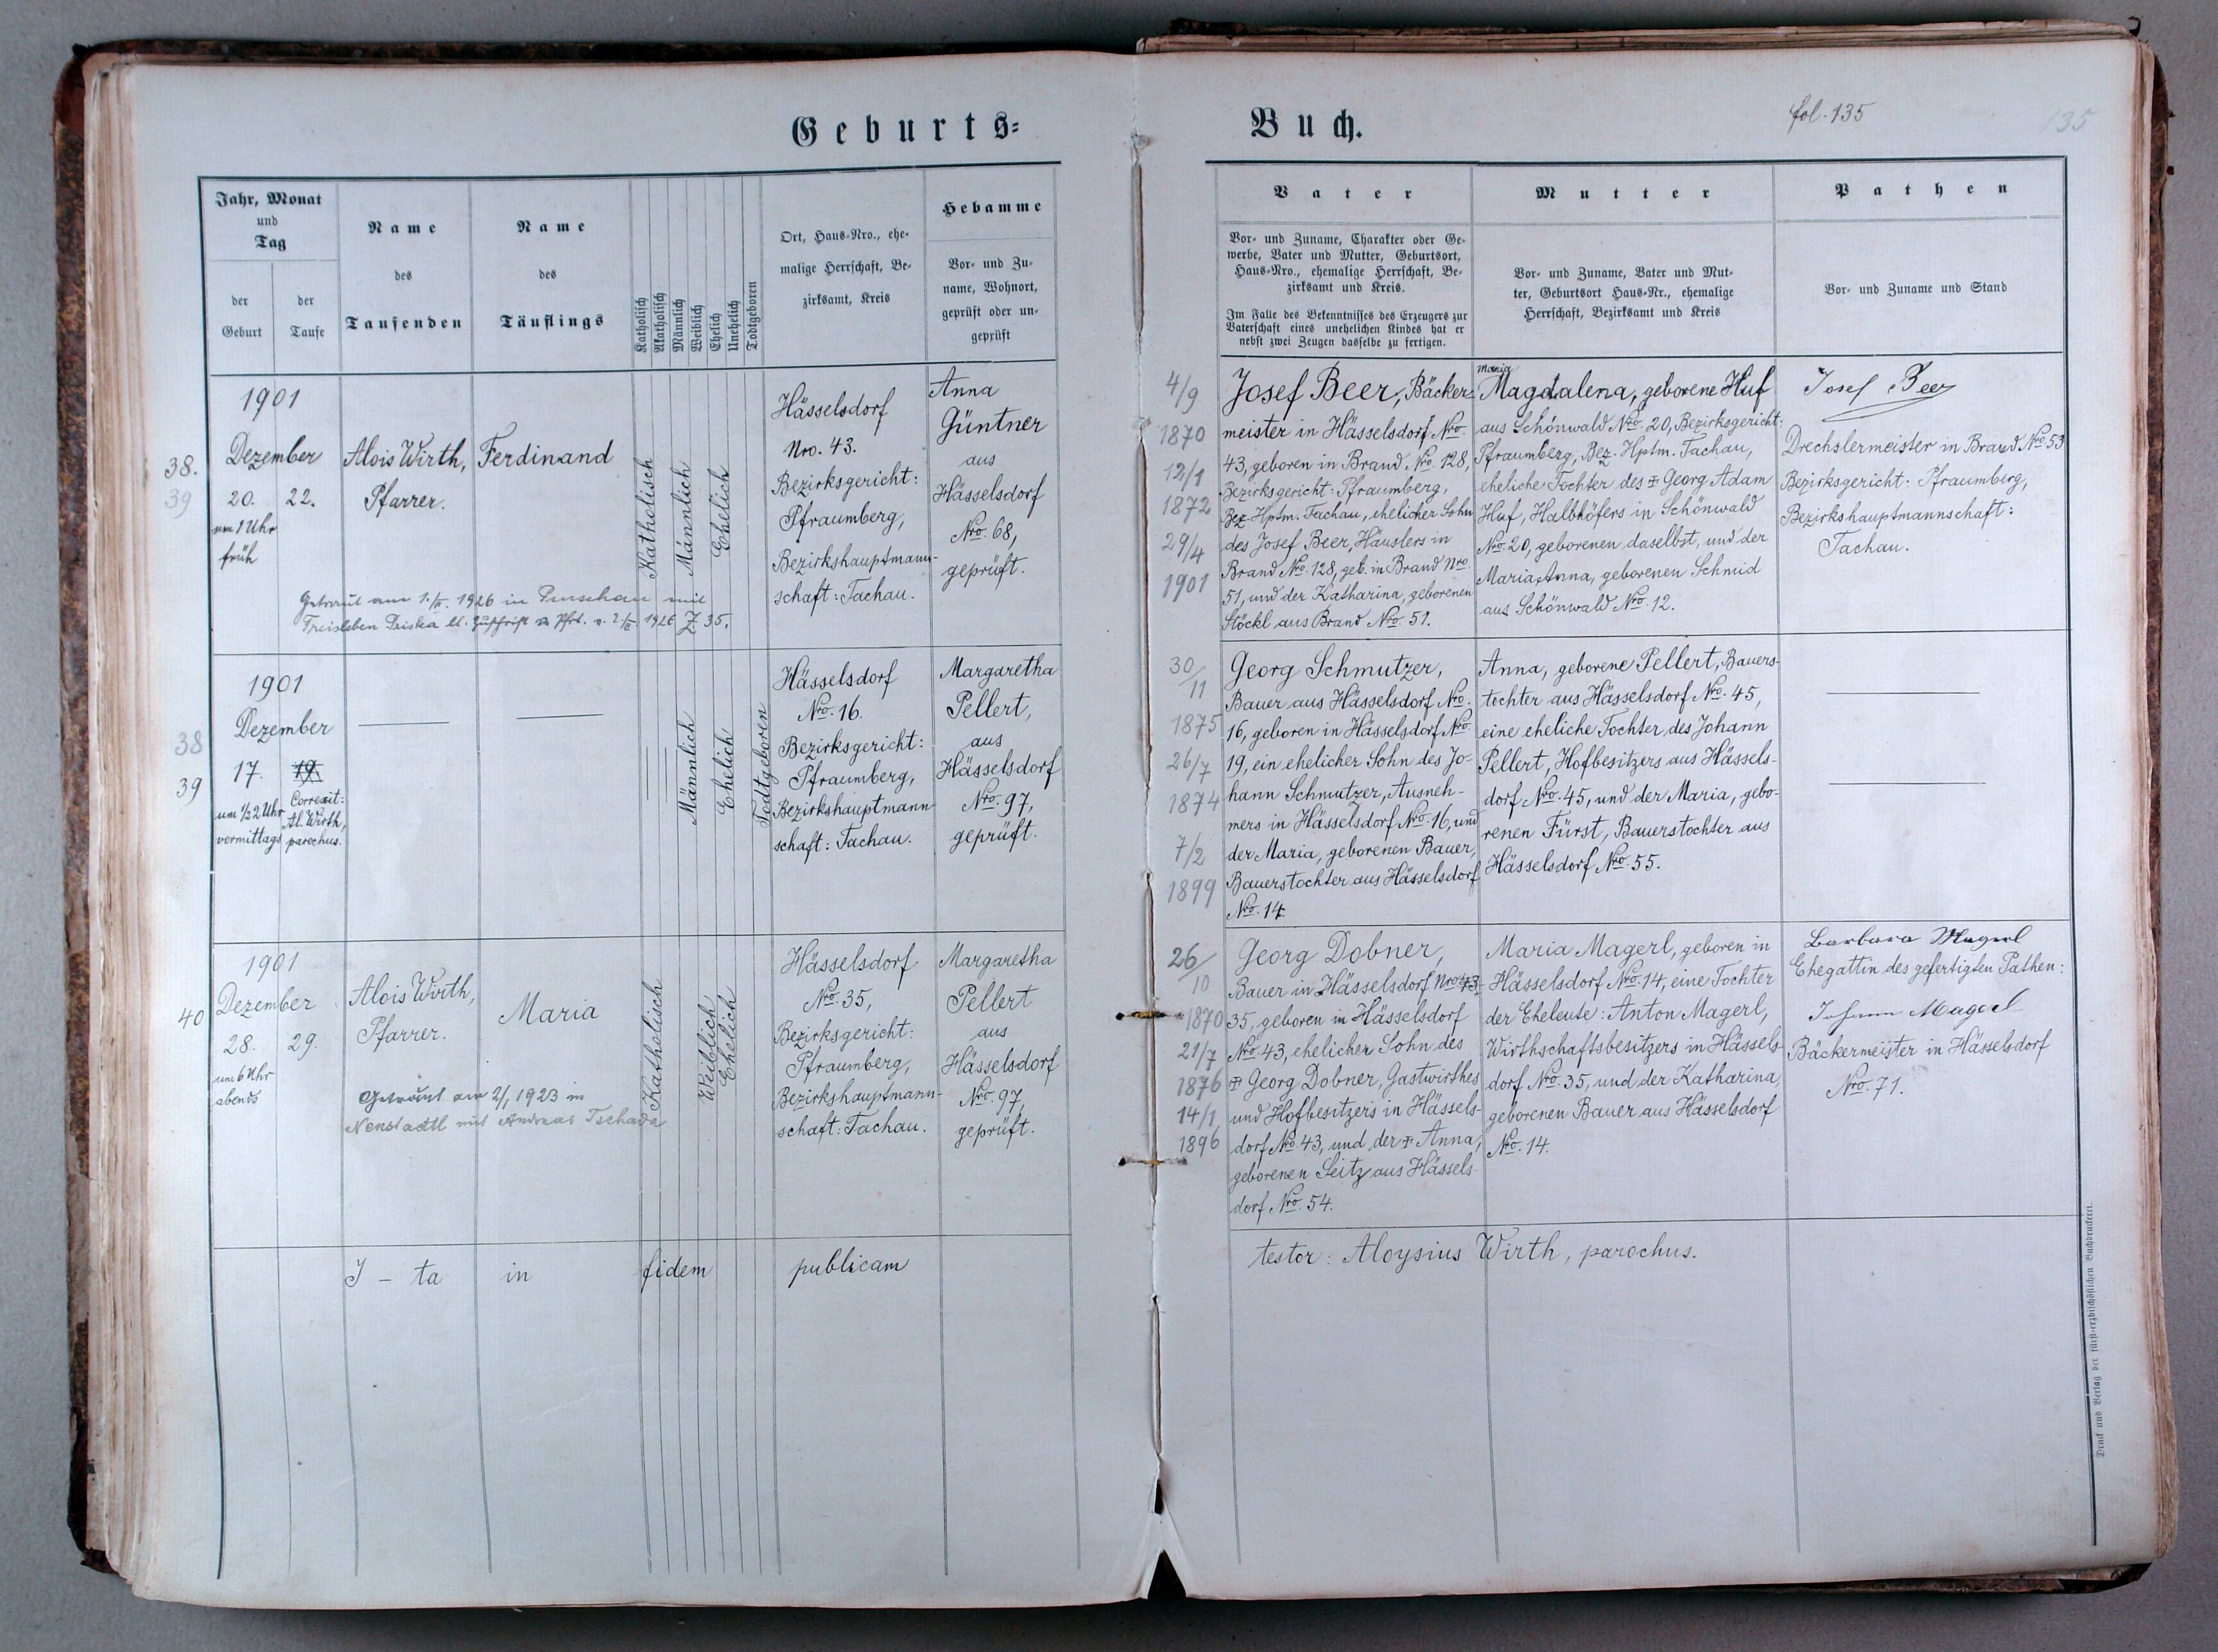 Geburts-
Buch.
fol. 135
135
Jahr, Monat
und
Tag
der
Geburt
der
Taufe
Name
des
Taufenden
Name
des
Täuflings
Katholisch
Akatholisch
Männlich
Weiblich
Ehelich
Unehelich
Todtgeboren
Ort, Haus-Nro., ehe-
malige Herrschaft, Be-
zirksamt, Kreis
Hebamme
Vor- und Zu-
name, Wohnort,
geprüft oder un-
geprüft
Vater
Vor- und Zuname, Charakter oder Ge-
werbe, Vater und Mutter, Geburtsort,
Haus-Nro., ehemalige Herrschaft, Be-
zirksamt und Kreis.
Im Falle des Bekenntnisses des Erzeugers zur
Vaterschaft eines unehelichen Kindes hat er
nebst zwei Zeugen dasselbe zu fertigen.
Mutter
Vor- und Zuname, Vater und Mut-
ter, Geburtsort Haus-Nr., ehemalige
Herrschaft, Bezirksamt und Kreis
Pathen
Vor- und Zuname und Stand
38.
39
1901
Dezember
20. 22.
um 1 Uhr
früh
Alois Wirth,
Pfarrer.
Ferdinand
Katholisch
Männlich
Ehelich
Hässelsdorf
Nro. 43.
Bezirksgericht:
Pfraumberg,
Bezirkshauptmann-
schaft: Tachau.
Anna
Güntner
aus
Hässelsdorf
Nro. 68,
geprüft.
Getraut am 1926 in mit
Freisleben 1926 Z. 35.
4/9
1870
12/1
1872
29/4
1901
Josef Beer, Bäcker-
meister in Hässelsdorf Nro.
43, geboren in Brand Nro. 128,
Bezirksgericht: Pfraumberg,
Bez. Hptm. Tachau, ehelicher Sohn
des Josef Beer, Häuslers in
Brand Nro. 128, geb. in Brand Nro.
51, und der Katharina, geborenen
Stöckl aus Brand Nro. 51.
Maria
Magdalena, geborene Huf
aus Schönwald Nro. 20, Bezirksgericht:
Pfraumberg, Bez. Hptm. Tachau,
eheliche Tochter des ☩ Georg Adam
Huf, Halbhöfers in Schönwald
Nro. 20, geborenen daselbst, und der
Maria Anna, geborenen Schmid
aus Schönwald Nro. 12.
Josef Beer
Drechslermeister in Brand Nro. 53
Bezirksgericht: Pfraumberg,
Bezirkshauptmannschaft:
Tachau.
38
39
1901
Dezember
17. 19.
um 1/2 2 Uhr
vormittags
Correxit:
Al. Wirth,
parochus.
Männlich
Ehelich
Todtgeboren
Hässelsdorf
Nro. 16.
Bezirksgericht:
Pfraumberg,
Bezirkshauptmann-
schaft: Tachau.
Margaretha
Pellert,
aus
Hässelsdorf
Nro. 97,
geprüft.
30/11
1875
26/7
1874
7/2
1899
Georg Schmutzer,
Bauer aus Hässelsdorf Nro.
16, geboren in Hässelsdorf Nro.
19, ein ehelicher Sohn des Jo-
hann Schmutzer, Ausneh-
mers in Hässelsdorf Nro. 16, und
der Maria, geborenen Bauer,
Bauerstochter aus Hässelsdorf
Nro. 14.
Anna, geborene Pellert, Bauers-
tochter aus Hässelsdorf Nro. 45,
eine eheliche Tochter des Johann
Pellert, Hofbesitzers aus Hässels-
dorf Nro. 45, und der Maria, gebo-
renen Fürst, Bauerstochter aus
Hässelsdorf Nro. 55.
40
1901
Dezember
28. 29.
um 6 Uhr
abends
Alois Wirth,
Pfarrer.
Maria
Katholisch
Weiblich
Ehelich
Hässelsdorf
Nro. 35,
Bezirksgericht:
Pfraumberg,
Bezirkshauptmann-
schaft: Tachau.
Margaretha
Pellert
aus
Hässelsdorf
Nro. 97,
geprüft.
Getraut am 2/1 1923 in
Neustadtl mit Andreas Tschada
26/10
1870
21/7
1876
14/1
1896
Georg Dobner,
Bauer in Hässelsdorf Nro. 43.
35, geboren in Hässelsdorf
Nro. 43, ehelicher Sohn des
☩ Georg Dobner, Gastwirthes
und Hofbesitzers in Hässels-
dorf Nro. 43, und der ☩ Anna,
geborenen Seitz aus Hässels-
dorf Nro. 54.
Maria Magerl, geboren in
Hässelsdorf Nro. 14, eine Tochter
der Eheleute: Anton Magerl,
Wirthschaftsbesitzers in Hässels-
dorf Nro. 35, und der Katharina,
geborenen Bauer aus Hässelsdorf
Nro. 14.
Barbara Magerl
Ehegattin des gefertigten Pathen:
Johann Magerl
Bäckermeister in Hässelsdorf
Nro. 71.
I - ta in fidem publicam
testor: Aloysius Wirth, parochus.
Druck und Verlag der fürst-erzbischöflichen Buchdruckerei.